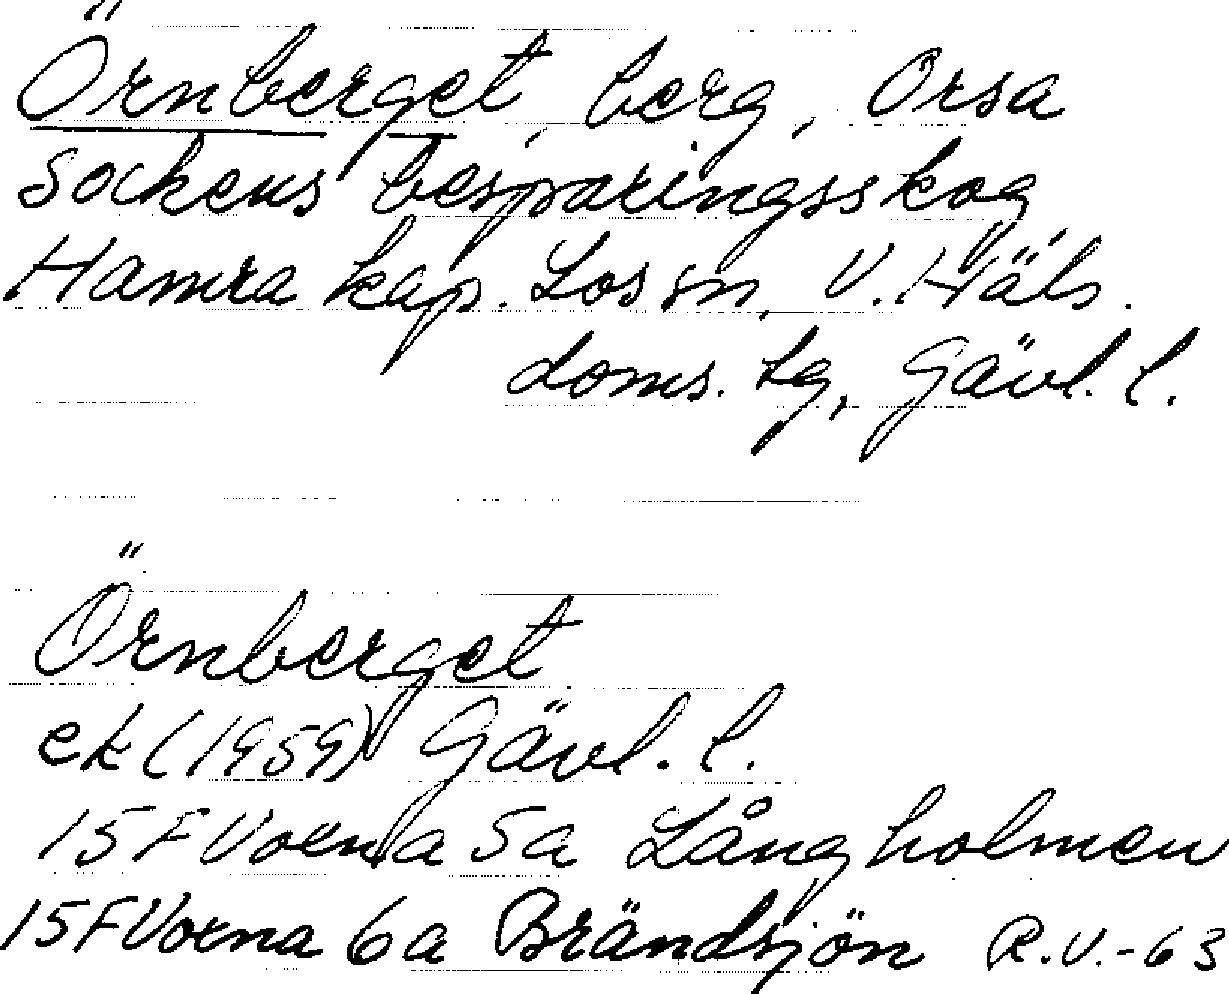 Örnberget, berg, Orsa
Sockens besparingsskog,
Hamra kap. Los sn, V. Häls.
doms. lg, Gävl. l.
Örnberget
ek (1959) Gävl. l.
15F Voxna 5a Långholmen
15F Voxna 6a Brändsjön R.V.-63